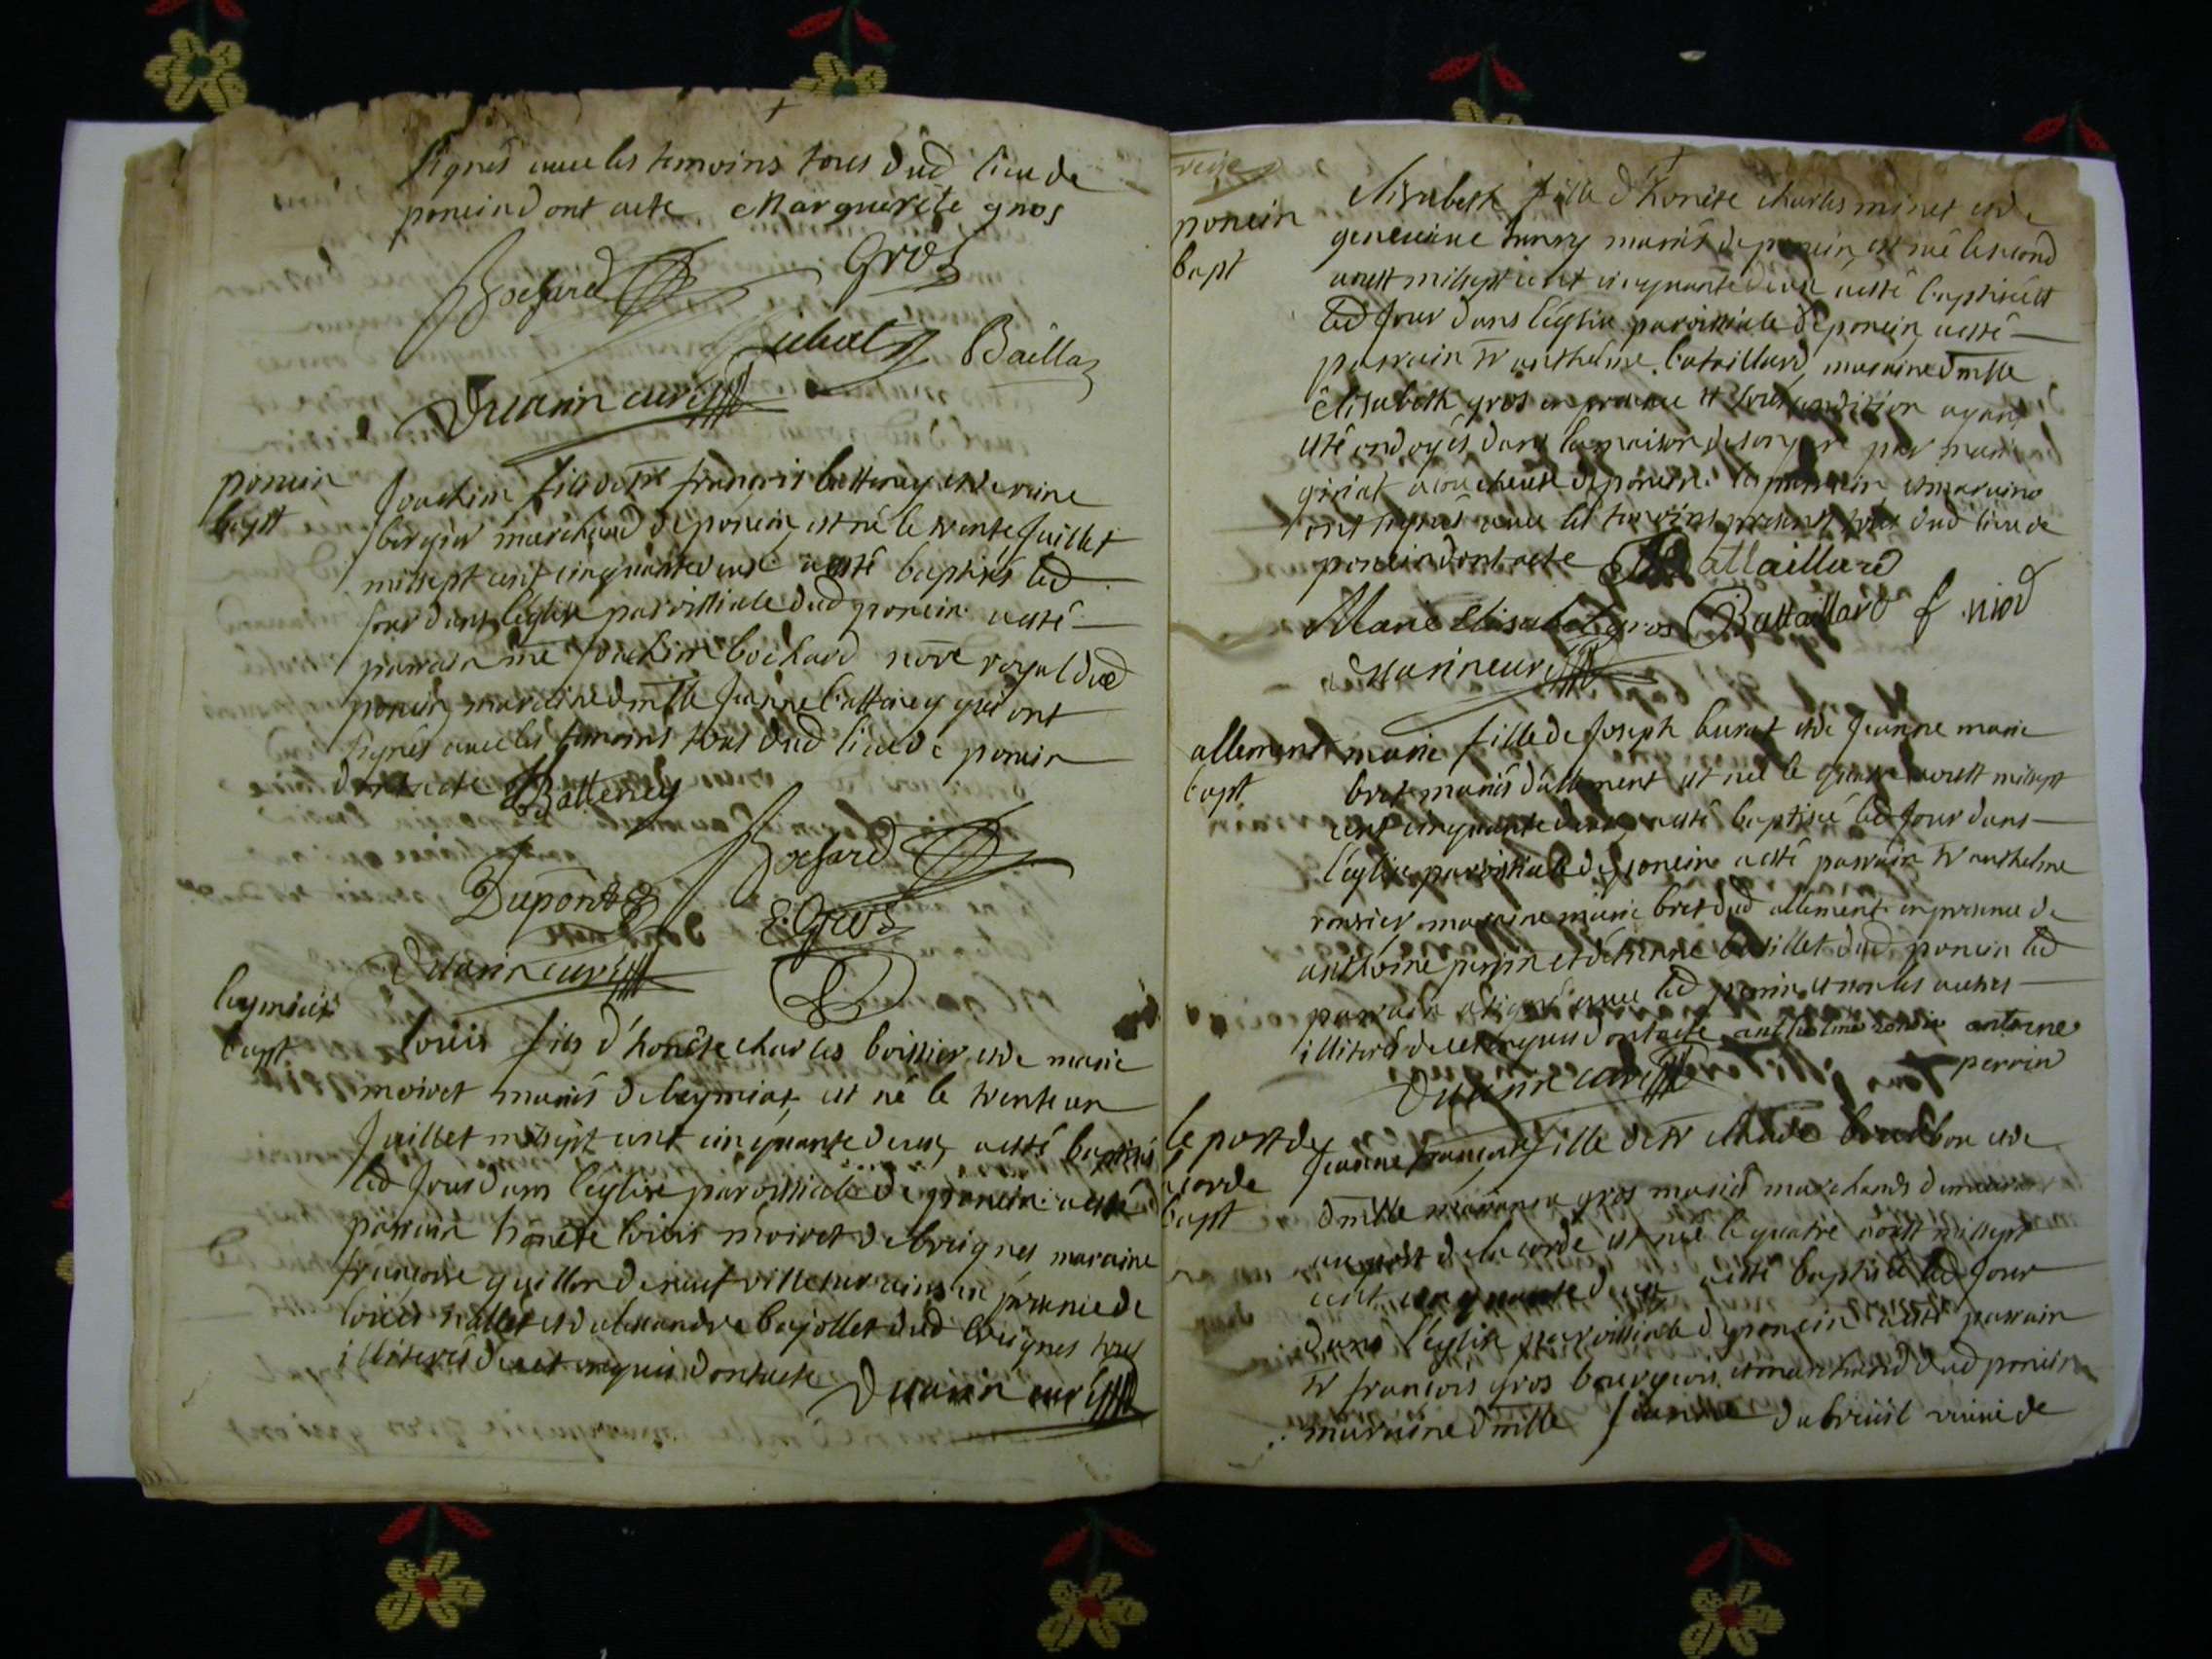 signés avec les temoins tous dud lieu de
poncin dont acte Marguerite gros
Bochard Gros
Baillaz
Duarin curé
poncin
bapt
Joachim fils de sr françois battoney et de
bergier marchand de poncin, est né le trente Juillet
mil sept cent cinquante deux a esté baptisé led
Jour dans l'eglise paroissiale dud poncin a esté
parrain me Joachim bochard nore royal dud
poncin, maraine dmlle Jeanne battoney qui ont
signés avec les temoins tous dud lieu de poncin
dont acte Batteney
Bochard
Dupont E. Gros
Duarin curé
leymiat
bapt
louis fils d'honete charles boissier et de marie
moiret mariés de leymiat, est né le trente un
Juillet mil sept cent cinquante deux, a esté baptisé
led Jour dans l'eglise paroissiale de poncin a esté
parrain honete louis moiret de breignes maraine
françoise guillon de neufville sur ains en presence de
louis et alexandre bajollet dud breignes tous
illiterés de ce enquis dont acte Duarin curé
poncin
bapt
Elisabeth fille d'honete charles minet et de
genevieve mariés de poncin, est née le second
aoust mil sept cent cinquante deux a esté baptisée
led Jour dans l'eglise paroissiale de poncin, a esté
parrain sr anthelme bataillard, maraine dmlle
Elisabeth gros en presence et sous condition ayant
esté ondoyés dans la maison de son pere par
giriat accoucheuse de poncin. le parrain et maraine
ont signés avec les temoins presents tous dud lieu de
poncin dont acte Battaillard
Marie Elisabet gros Battaillard f niod
Duarin curé
allement
bapt
marie fille de Joseph burat et de Jeanne marie
bret mariés d'allement est née le quatre aoust mil sept
cent cinquante deux a esté baptisée led Jour dans
l'eglise paroissiale de poncin a esté parrain sr anthelme
ronsier maraine marie bret dud allement en presence de
anthoine perrin et d'etienne dud poncin led
parrain a signé avec led perrin et non les autres
illiterés de ce enquis dont acte anthelme antoine
perrin
Duarin curé
le port de
la corde
bapt
Jeanne françoise fille de sr claude bourbon et de
dmlle gros mariés marchands
au port de la corde est née le quatre aoust mil sept
cent cinquante deux a esté baptisée led Jour
dans l'eglise paroissiale de poncin a esté parrain
sr françois gros bourgeois et marchand dud poncin
maraine dmlle Jeanne dubreuil de